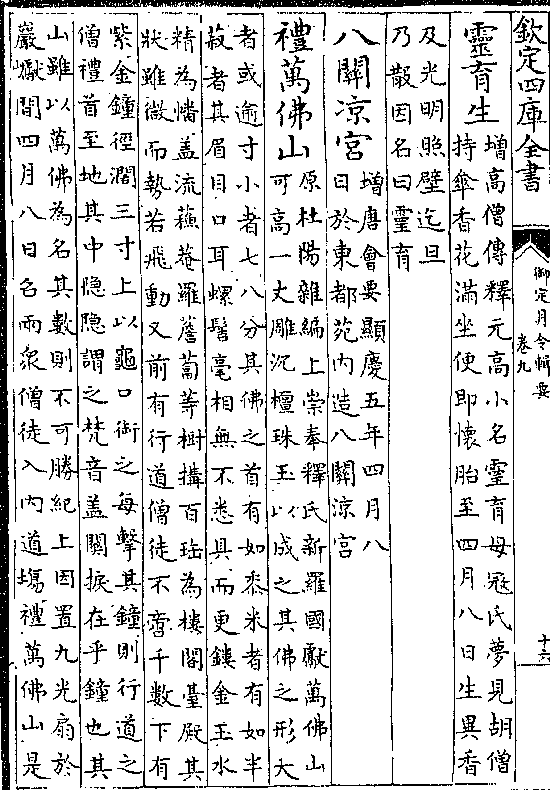 欽定四庫全書
御定月令輯要
卷九
十六
靈育生
增高僧傳釋元高小名靈育母冦氏夢見胡僧
持傘香花滿坐便即懷胎至四月八日生異香
及光明照壁迄旦
乃散因名曰靈育
八關凉宫
增唐會要顯慶五年四月八
日於東都苑内造八關凉宫
禮萬佛山
原杜陽雜編上崇奉釋氏新羅國獻萬佛山
可高一丈雕沉檀珠玉以成之其佛之形大
者或逾寸小者七八分其佛之首有如黍米者有如半
菽者其眉目口耳螺髻毫相無不悉具而更鏤金玉水
精為幡盖流蘇菴羅薝蔔等樹搆百珤為樓閣臺殿其
狀雖微而勢若飛動又前有行道僧徒不啻千數下有
紫金鐘徑濶三寸上以龜口銜之每擊其鐘則行道之
僧禮首至地其中隠隠謂之梵音盖關捩在乎鐘也其
山雖以萬佛為名其數則不可勝紀上因置九光扇於
巖巘間四月八日名兩衆僧徒入内道塲禮萬佛山是